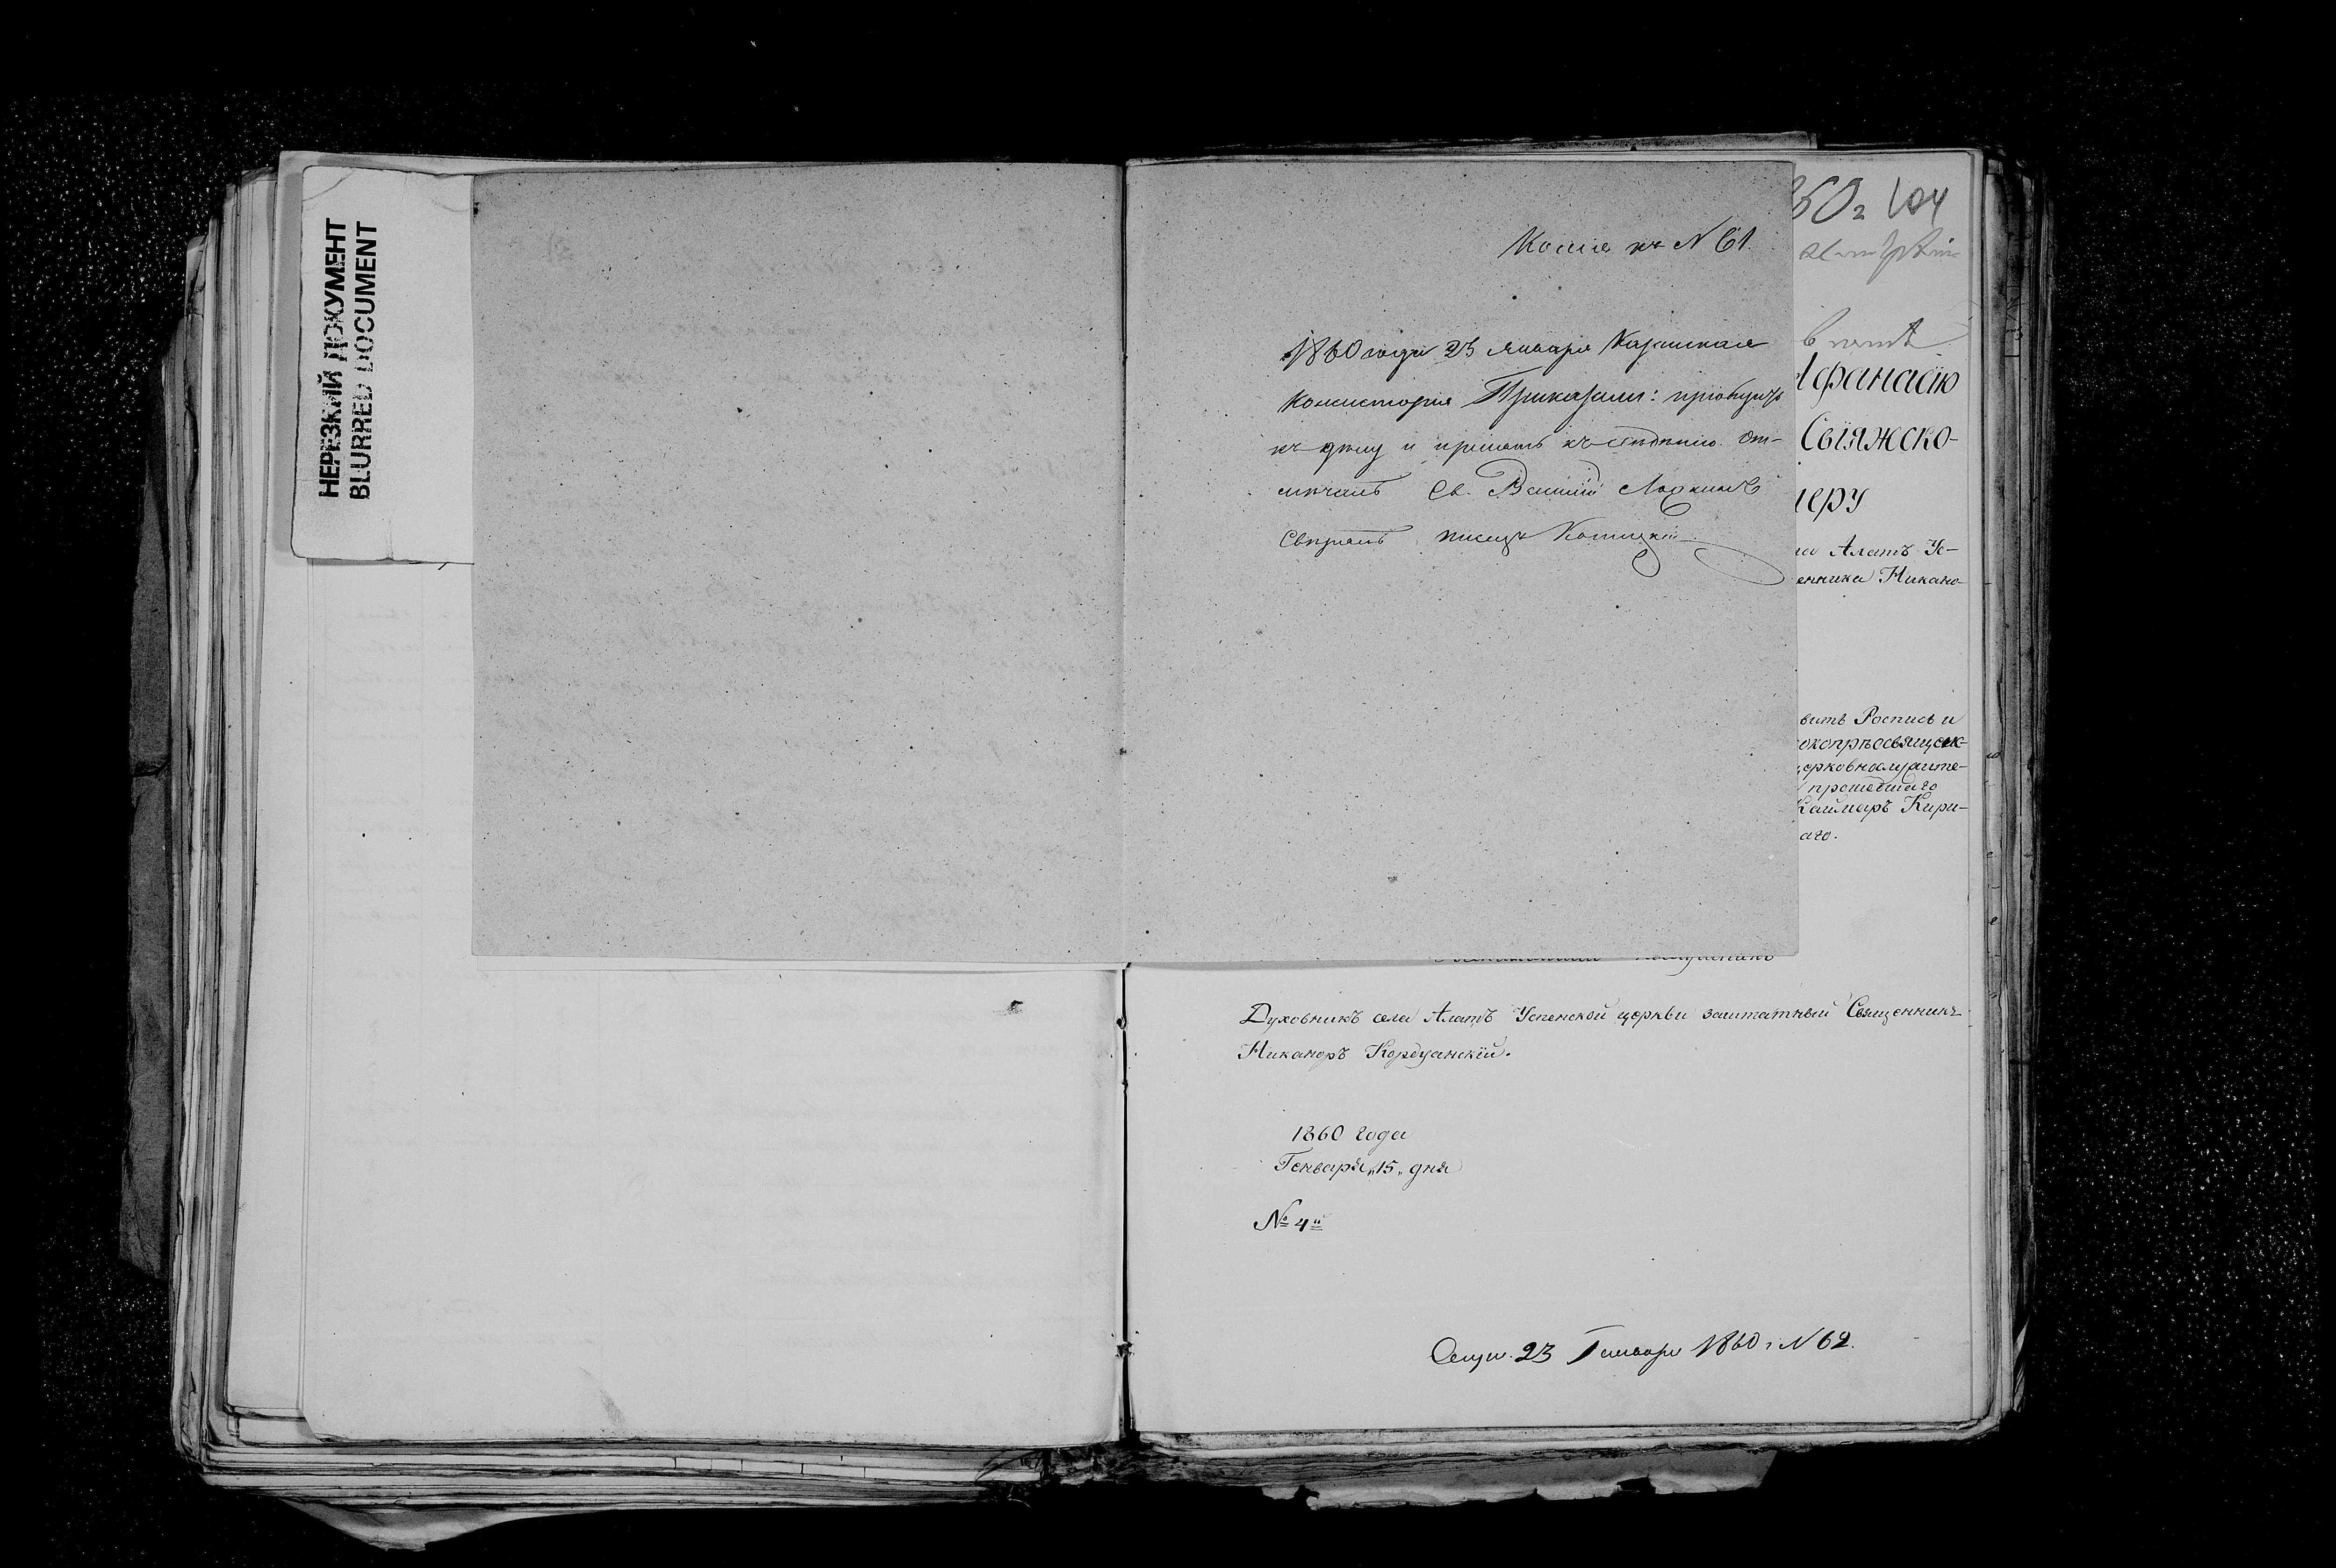 НЕРЕЗКИЙ ДОКУМЕНТ
BLURRED DOCUMENT
Копия къ N 61.
1860 года 23 Января Казанская
Консисторія Приказали: пріобщить
къ дѣлу и принять къ свѣдѣнію. От-
мѣчалъ Св. Василій
Свѣрялъ писецъ
60 г 104
Афанасію
Свіяжско-
леру
ла Алатъ Ус-
енника Никано-
вить Роспись и
окопрѣосвящен-
церковнослужите-
прошедшаго
Каймаръ Кири-
аго.
Духовникъ села Алатъ Успенской церкви заштатный Священникъ
Никаноръ Кордуанскій.
1860 года
Генваря „15„ дня
№ 4й
23 Генваря 1860 г N 62.